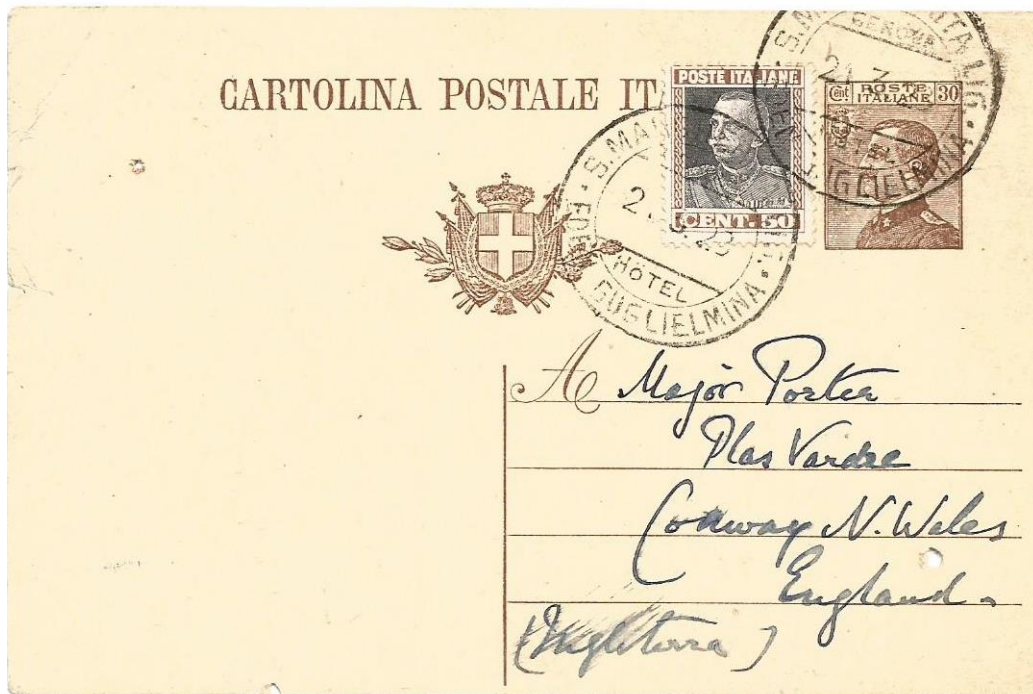 CARTOLINA POSTALE IT
POSTE ITALIANE
CENT. 50
Cent POSTE ITALIANE 30
HÔTEL
GUGLIELMINA
A Major Porter
Plas Vardre
Conway N. Wales
England
(Inghilterra)